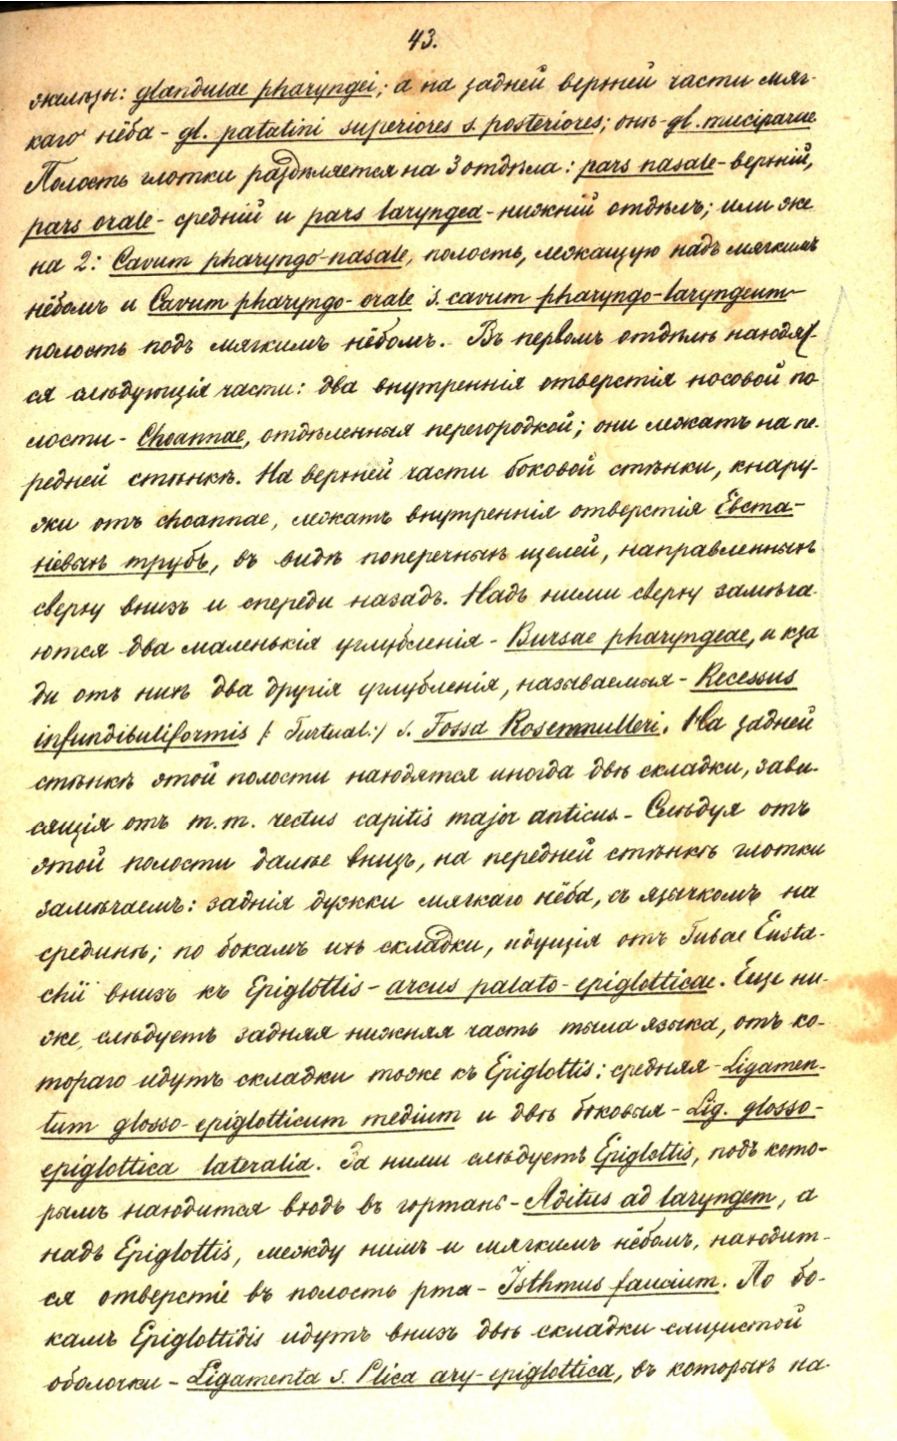 43.
железы: glandulae pharyngei; а на задней верхней части мяг-
каго нёба - gl. patatini superiores s. posteriores; онѣ - gl. muciparae
Полость глотки раздѣляется на 3 отдѣла: pars nasale - верхній,
pars orale - средній и pars laryngea - нижній отдѣлъ; или же
на 2: Cavum pharyngo-nasale, полость, лежащую надъ мягкимъ
нёбомъ и Cavum pharyngo-orale s. cavum pharyngo-laryngeum -
полость подъ мягкимъ нёбомъ. - Въ первомъ отдѣлѣ находят-
ся слѣдующія части: два внутреннія отверстія носовой по-
лости - Choannae, отдѣленныя перегородкой; они лежатъ на пе-
редней стѣнкѣ. На верхней части боковой стѣнки, кнару-
жи отъ choannae, лежатъ внутреннія отверстія Евста-
хіевыхъ трубъ, въ видѣ поперечныхъ щелей, направленныхъ
сверху внизъ и спереди назадъ. Надъ ними сверху замѣча-
ются два маленькія углубленія - Bursae pharyngeae, и кза-
ди отъ нихъ два другія углубленія, называемыя - Recessus
infundibuliformis (: Turtual:) s. Fossa Rosenmulleri. На задней
стѣнкѣ этой полости находятся иногда двѣ складки, зави-
сящія отъ m.m. rectus capitis major anticus. - Слѣдуя отъ
этой полости далѣе внизъ, на передней стѣнкѣ глотки
замѣчаемъ: заднія дужки мягкаго нёба, съ язычкомъ на
срединѣ; по бокамъ ихъ складки, идущія отъ Tubae Eusta-
chii внизъ къ Epiglottis - arcus palato-epiglotticae. Еще ни-
же, слѣдуетъ задняя нижняя часть тыла языка, отъ ко-
тораго идутъ складки тоже къ Epiglottis: средняя - Ligamen-
tum glosso-epiglotticum medium и двѣ боковыя - Lig. glosso-
epiglottica lateralia. За ними слѣдуетъ Epiglottis, подъ кото-
рымъ находится входъ въ гортань - Aditus ad laryngem, а
надъ Epiglottis, между нимъ и мягкимъ нёбомъ, находит-
ся отверстіе въ полость рта - Isthmus faucium. По бо-
камъ Epiglottidis идутъ внизъ двѣ складки слизистой
оболочки - Ligamenta s. Plica ary-epiglottica, въ которыхъ на-